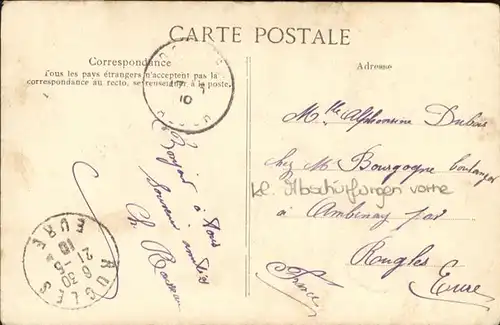 CARTE POSTALE
Correspondance
Tous les pays étrangers n'acceptent pas la
correspondance au recto, se renseigner à la poste.
Adresse
Bonjour à tous
Souvenir amitiés
Ch.
Mlle Alphonsine Dubois
chez Mr Bourgogne boulanger
kl. Abschürfungen vorne
à Ambenay par
Rugles
Eure
(France)
RUGLES
6 30
21 -6
10
EURE
10